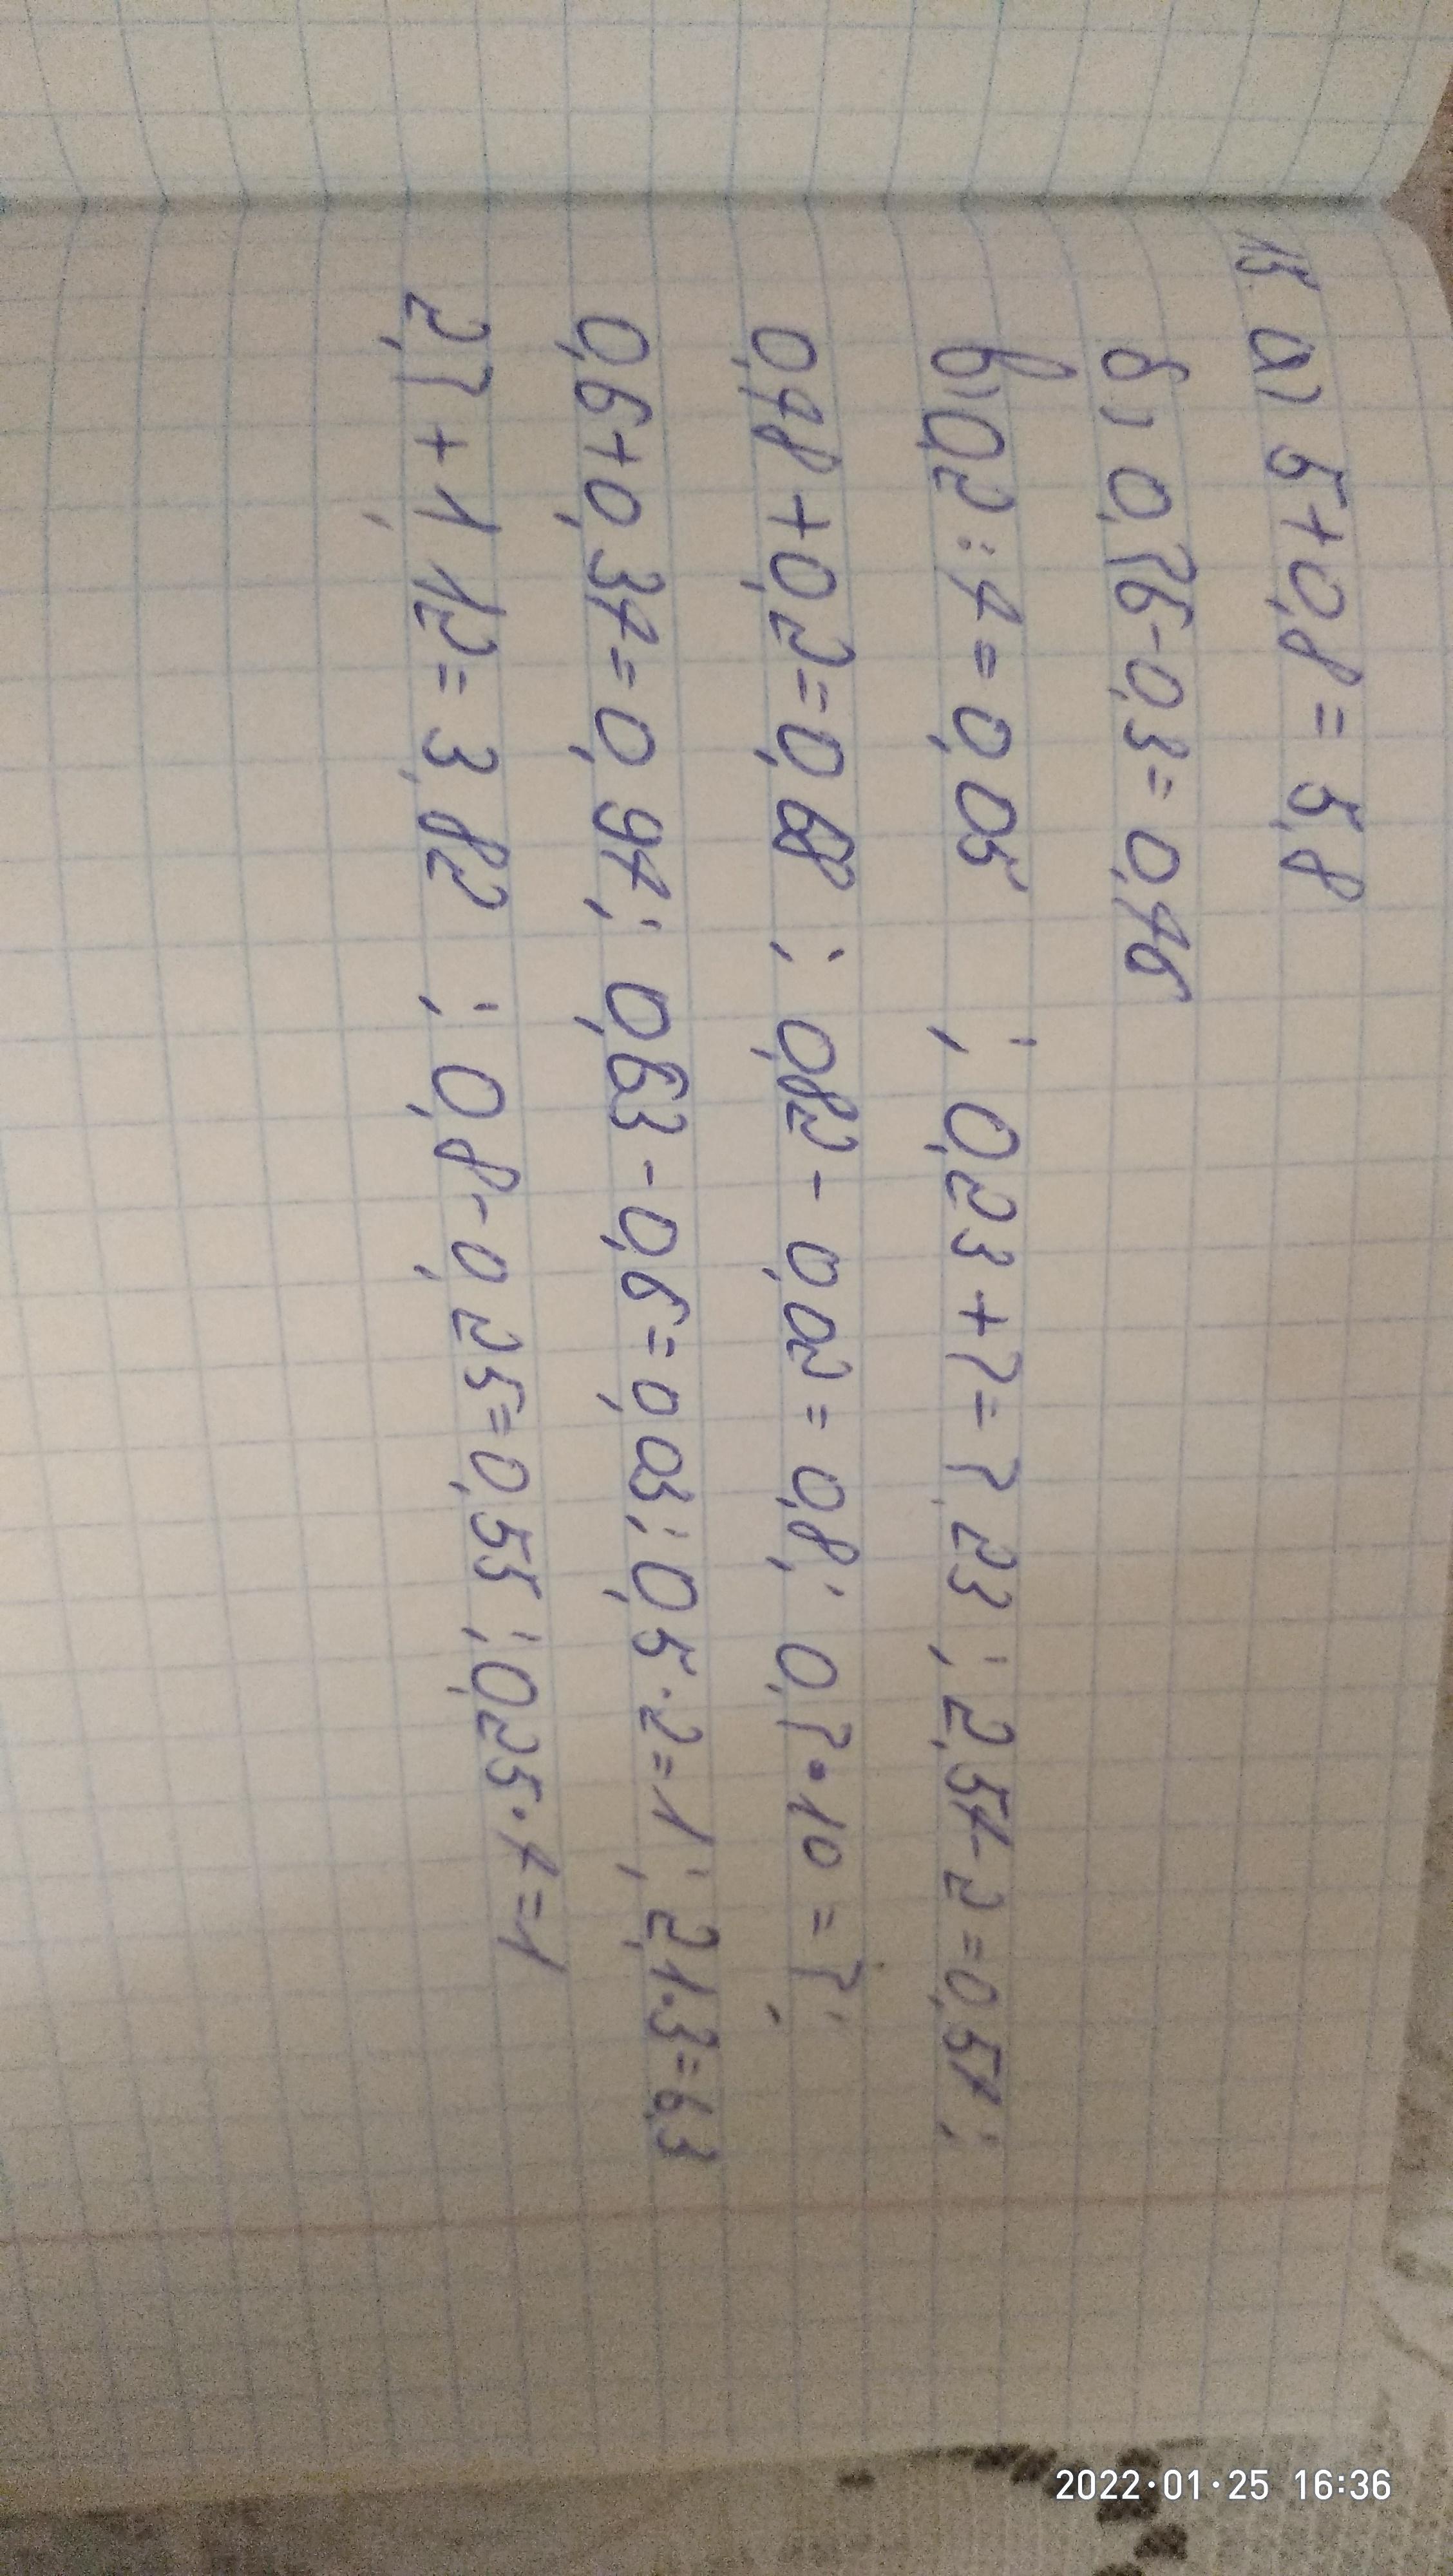 15. а) 5+0,8 = 5,8
б) 0,76-0,3 = 0,46
в) 0,2 : 4 = 0,05 ; 0,23 + 7 = 7,23 ; 2,54-2 = 0,54 ;
0,48 + 0,2 = 0,68 ; 0,82 - 0,02 = 0,8 ; 0,7 • 10 = 7 ;
0,6+0,34 = 0,94 ; 0,63 - 0,6 = 0,03 ; 0,5 · 2 = 1 ; 2,1·3 = 6,3
2,7 + 1,12 = 3,82 ; 0,8-0,25 = 0,55 ; 0,25·4=1
2022·01·25 16:36